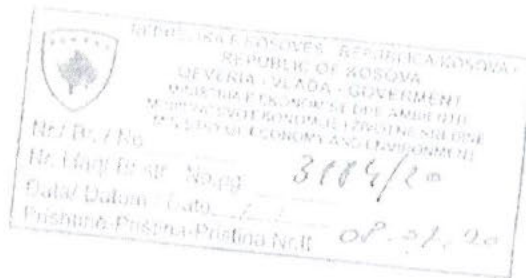 REPUBLIKA E KOSOVËS - REPUBLIKA KOSOVA -
REPUBLIC OF KOSOVA
QEVERIA - VLADA - GOVERMENT
MINISTRIA E EKONOMISË DHE AMBIENTIT
MINISTARSTVO EKONOMIJE I ŽIVOTNE SREDINE
MINISTRY OF ECONOMY AND ENVIRONMENT
Nr./ Br. / No
Nr. i faqi/ Br. str. No.pg.
Data/ Datum Date
Prishtinë-Priština-Pristina